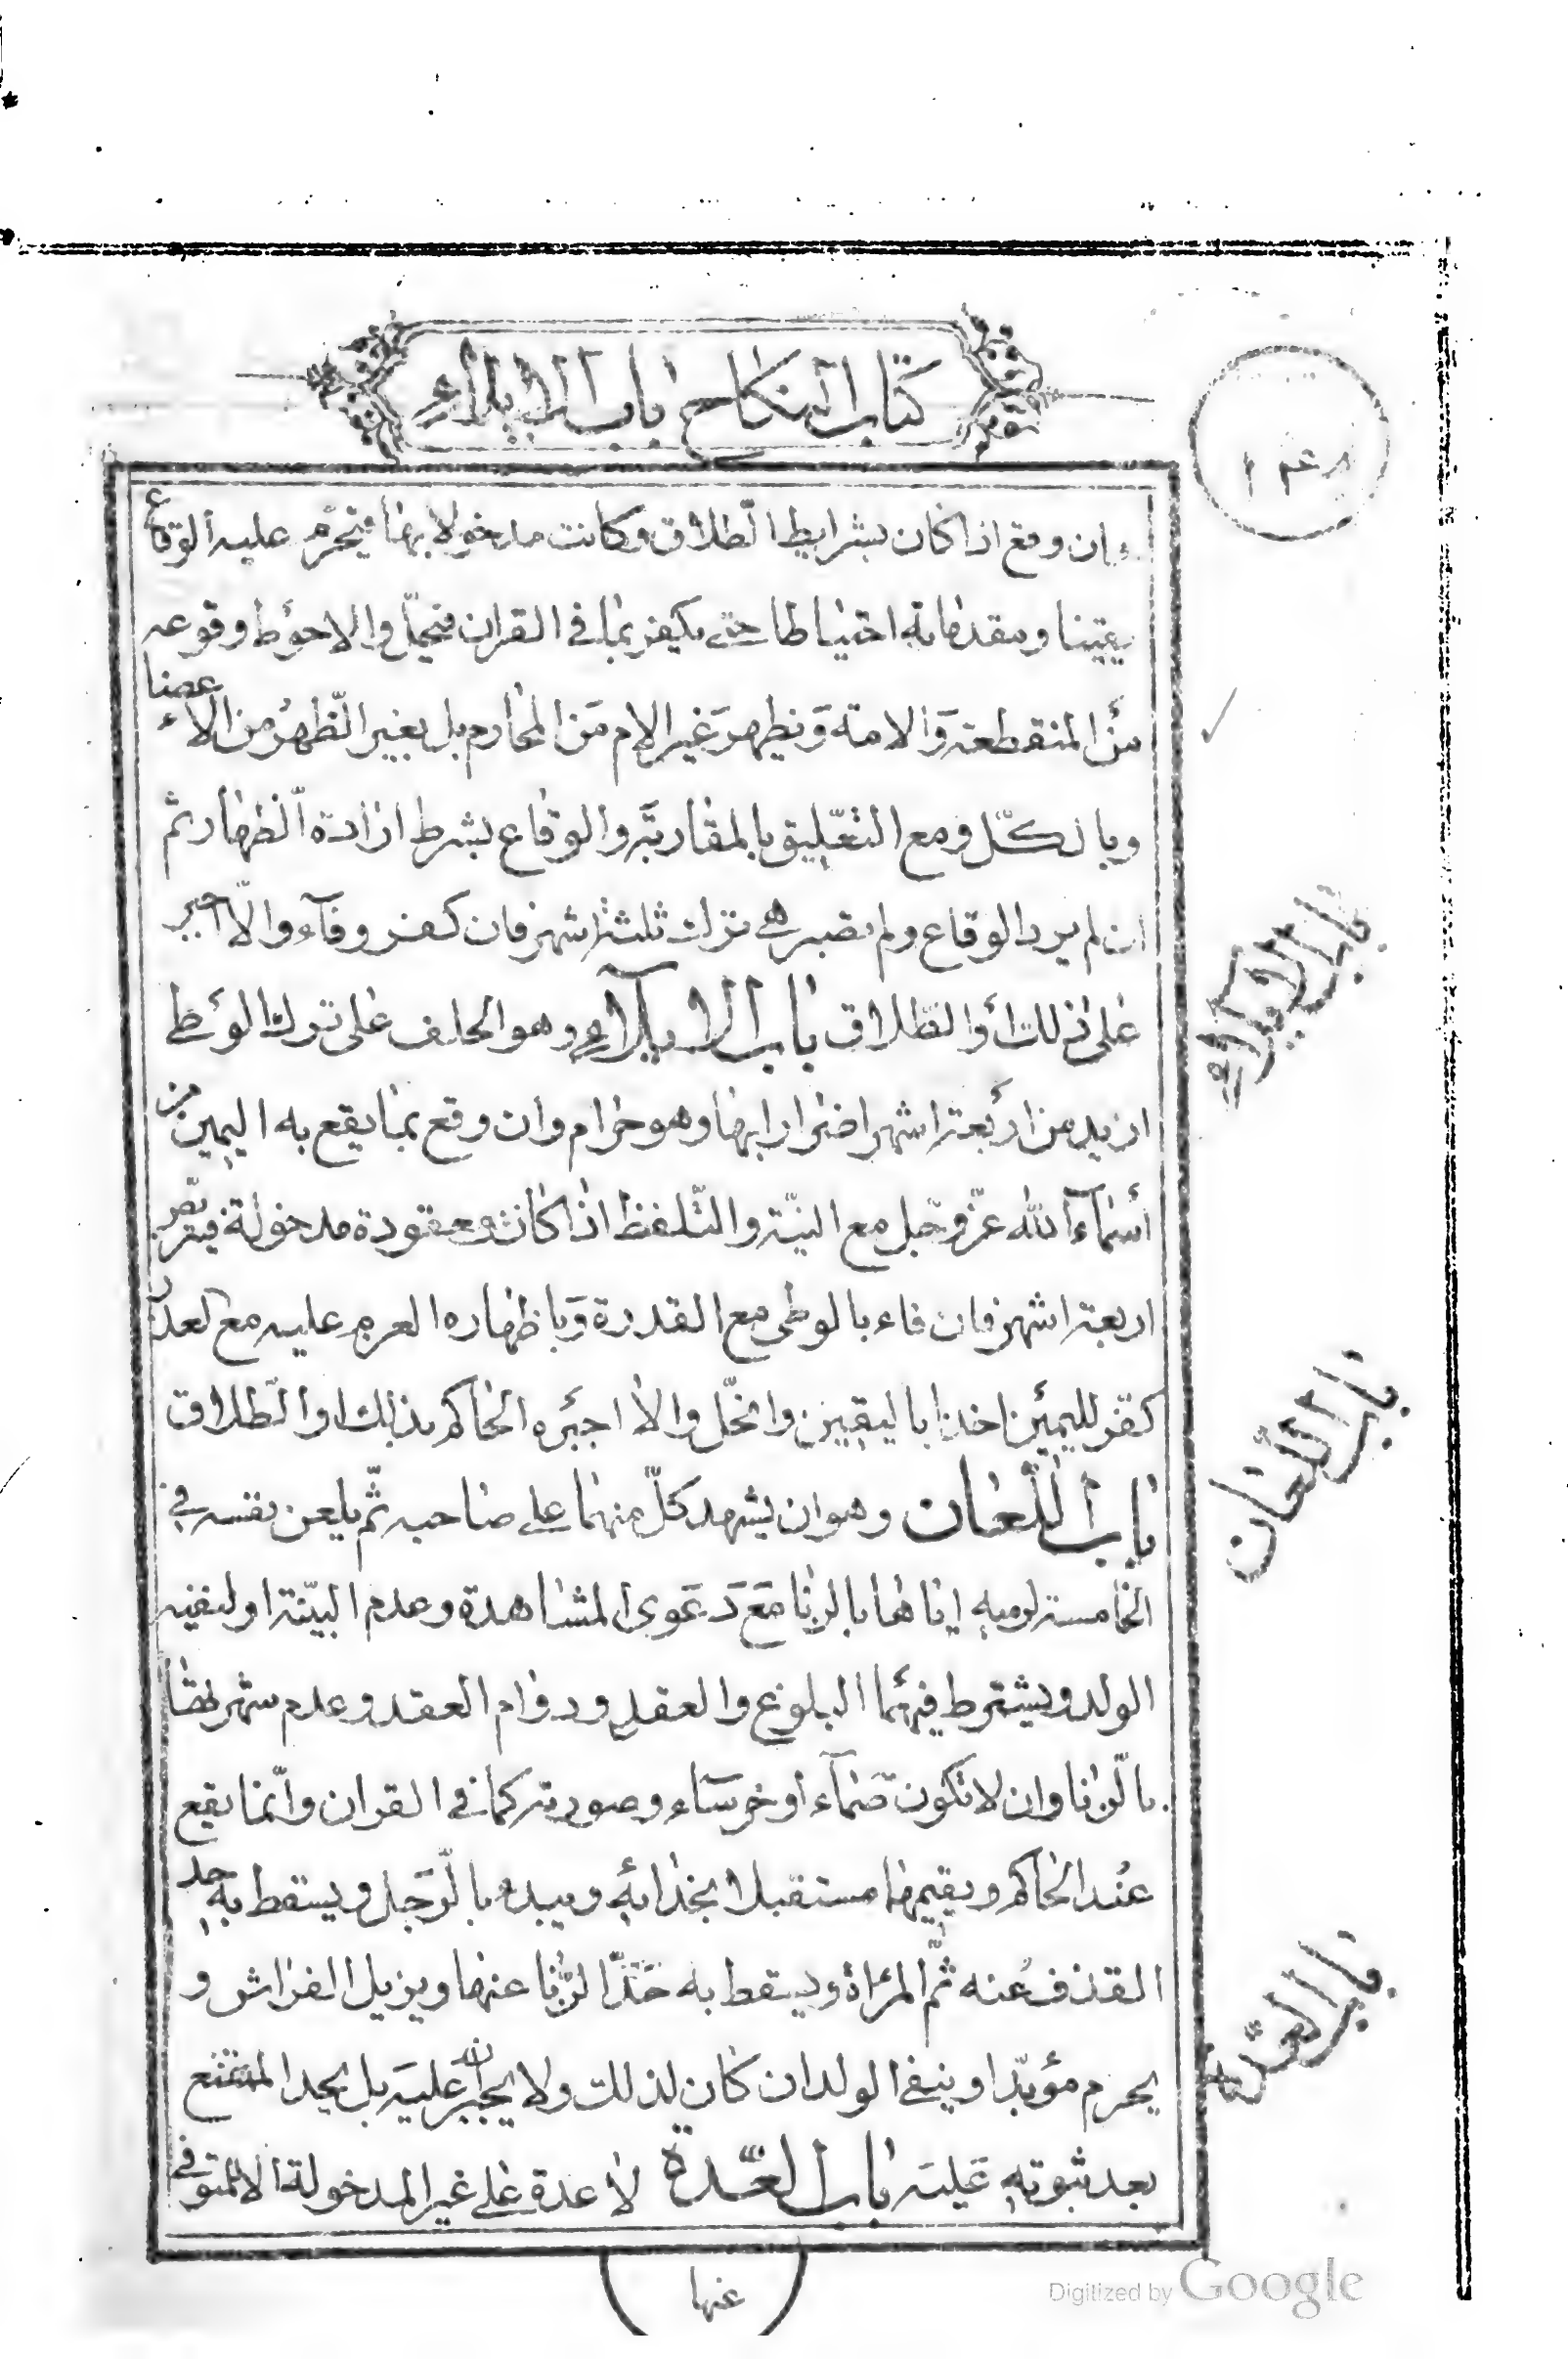 كتاب النكاح باب الايلاء
وان وقع اذا كان بشرايط الطلاق وكانت مدخولا بها فيحرم عليه الوقاع
يقينا ومقدماته احتياطا حتى يكفر بما في القران فيحل والاحوط وقوعه
من المنقطعة والامة ونظهر غير الام من المحارم بل بغير الظهر من الاعضاء
وبالكل ومع التعليق بالمقاربة والوقاع بشرط ارادة الظهار ثم
ان لم يرد الوقاع ولم تصبر هي تترك ثلثة اشهر فان كفر وفآء والّا اجبر
على ذلك أو الطلاق باب الايلآء وهو الحلف على ترك الوطى
ازيد من اربعة اشهر اضرارا بها وهو حرام وان وقع بما يقع به اليمين من
أسمآء الله عزّ وجل مع النيّة والتّلفظ اذا كانت معقودة مدخولة فيتربّص
اربعة اشهر فان فاء بالوطى مع القدرة وباظهاره العزم عليه مع العذر
كفر لليمين اخذا باليقين وانحلّ والا اجبره الحاكم بذلك او الطّلاق
باب اللّعان وهو ان يشهد كلّ منهما على صاحبه ثمّ يلعن نفسه في
الخامسة لرميه اياها بالزنا مع دعوى المشاهدة وعدم البيّنة او لنفيه
الولد ويشترط فيهما البلوغ والعقل ودوام العقد وعدم شهرتها
بالزّنا وان لا تكون صمآء أو خرسآء وصورته كما في القران وانّما يقع
عند الحاكم ويقيمهما مستقبلا بحذائه ويبدء بالرّجل ويسقط به حد
القذف عنه ثمّ المرأة ويسقط به حدّ الزّنا عنها ويزيل الفراش و
يحرم مؤبّدا وينفى الولد ان كان لذلك ولا يجبران عليه بل يحد الممتنع
بعد ثبوته عليه باب العدّة لا عدة على غير المدخولة الا المتوفى
باب الايلاء
باب اللعان
باب العدّة
عنها
Digitized by Google